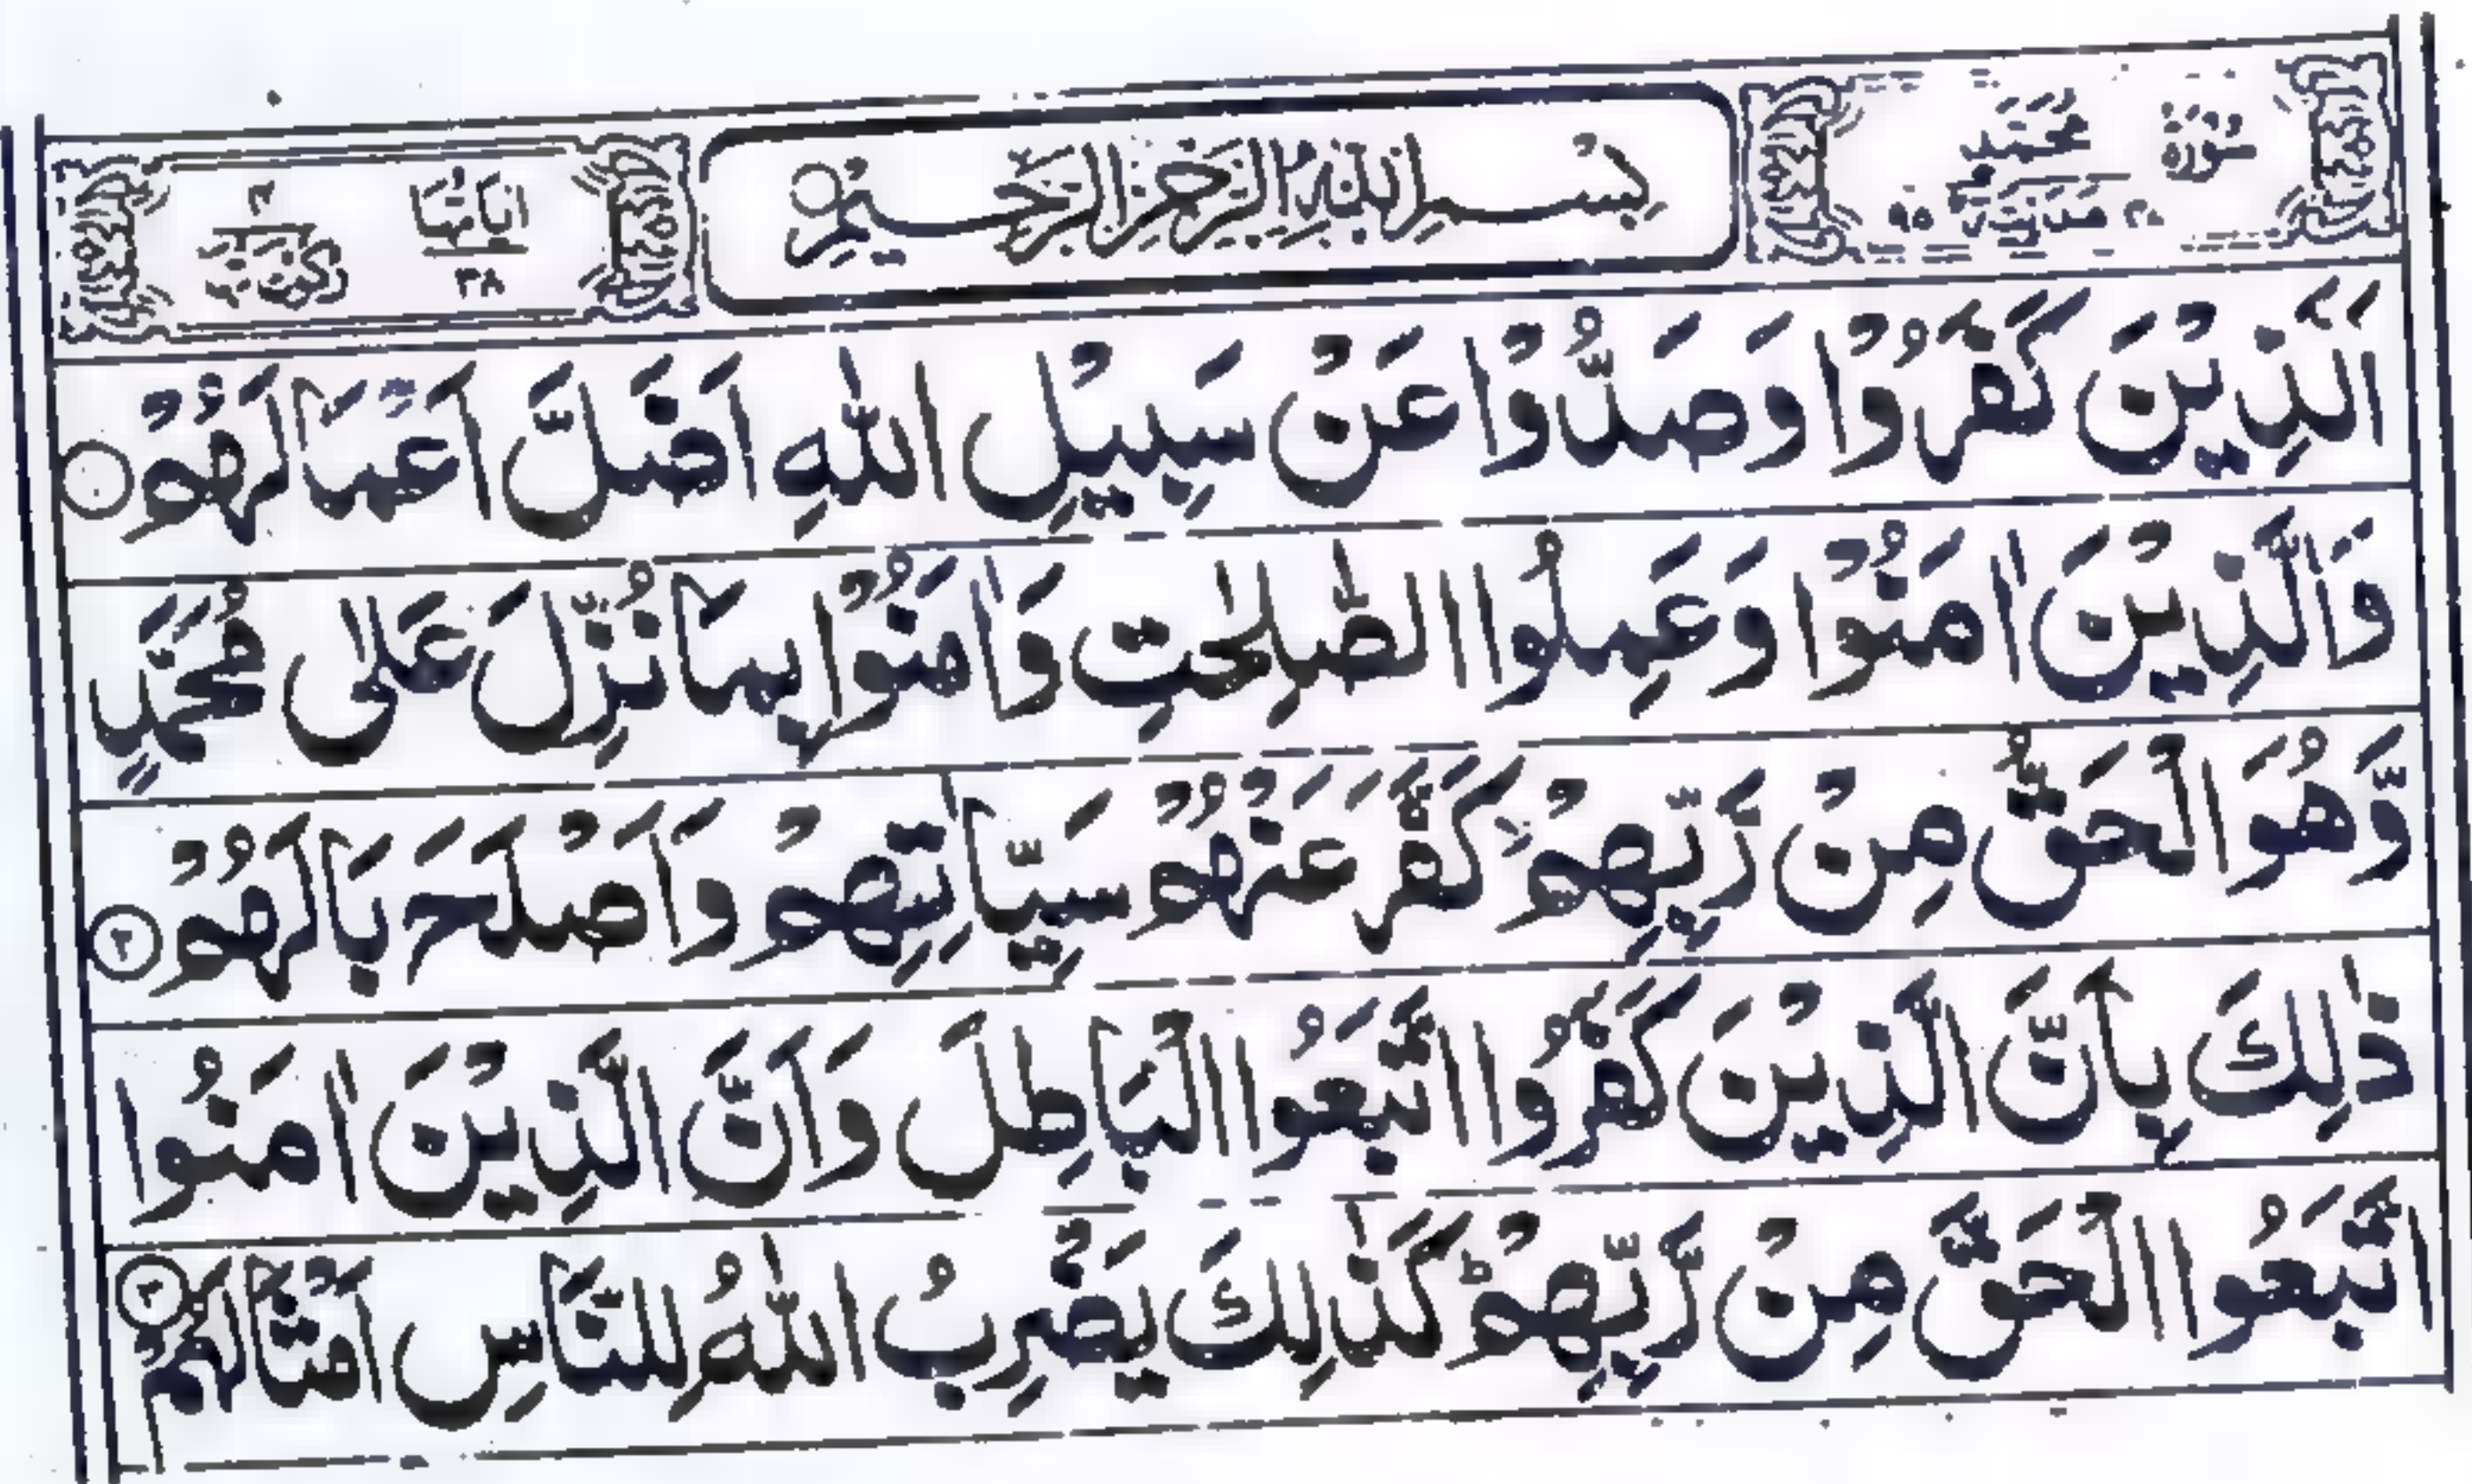 سُوْرَةُ مُحَمَّدٍ مَدَنِيَّةٌ ٩٥ بِسْمِ اللّٰهِ الرَّحْمٰنِ الرَّحِيْمِ ○ اٰيَاتُهَا ٣٨ رُكُوْعَاتُهَا ٤
اَلَّذِيْنَ كَفَرُوْا وَصَدُّوْا عَنْ سَبِيْلِ اللّٰهِ اَضَلَّ اَعْمَالَهُمْ ①
وَالَّذِيْنَ اٰمَنُوْا وَعَمِلُوا الصّٰلِحٰتِ وَاٰمَنُوْا بِمَا نُزِّلَ عَلٰى مُحَمَّدٍ
وَّهُوَ الْحَقُّ مِنْ رَّبِّهِمْ كَفَّرَ عَنْهُمْ سَيِّاٰتِهِمْ وَاَصْلَحَ بَالَهُمْ ②
ذٰلِكَ بِاَنَّ الَّذِيْنَ كَفَرُوا اتَّبَعُوا الْبَاطِلَ وَاَنَّ الَّذِيْنَ اٰمَنُوا
اتَّبَعُوا الْحَقَّ مِنْ رَّبِّهِمْ ؕ كَذٰلِكَ يَضْرِبُ اللّٰهُ لِلنَّاسِ اَمْثَالَهُمْ ③